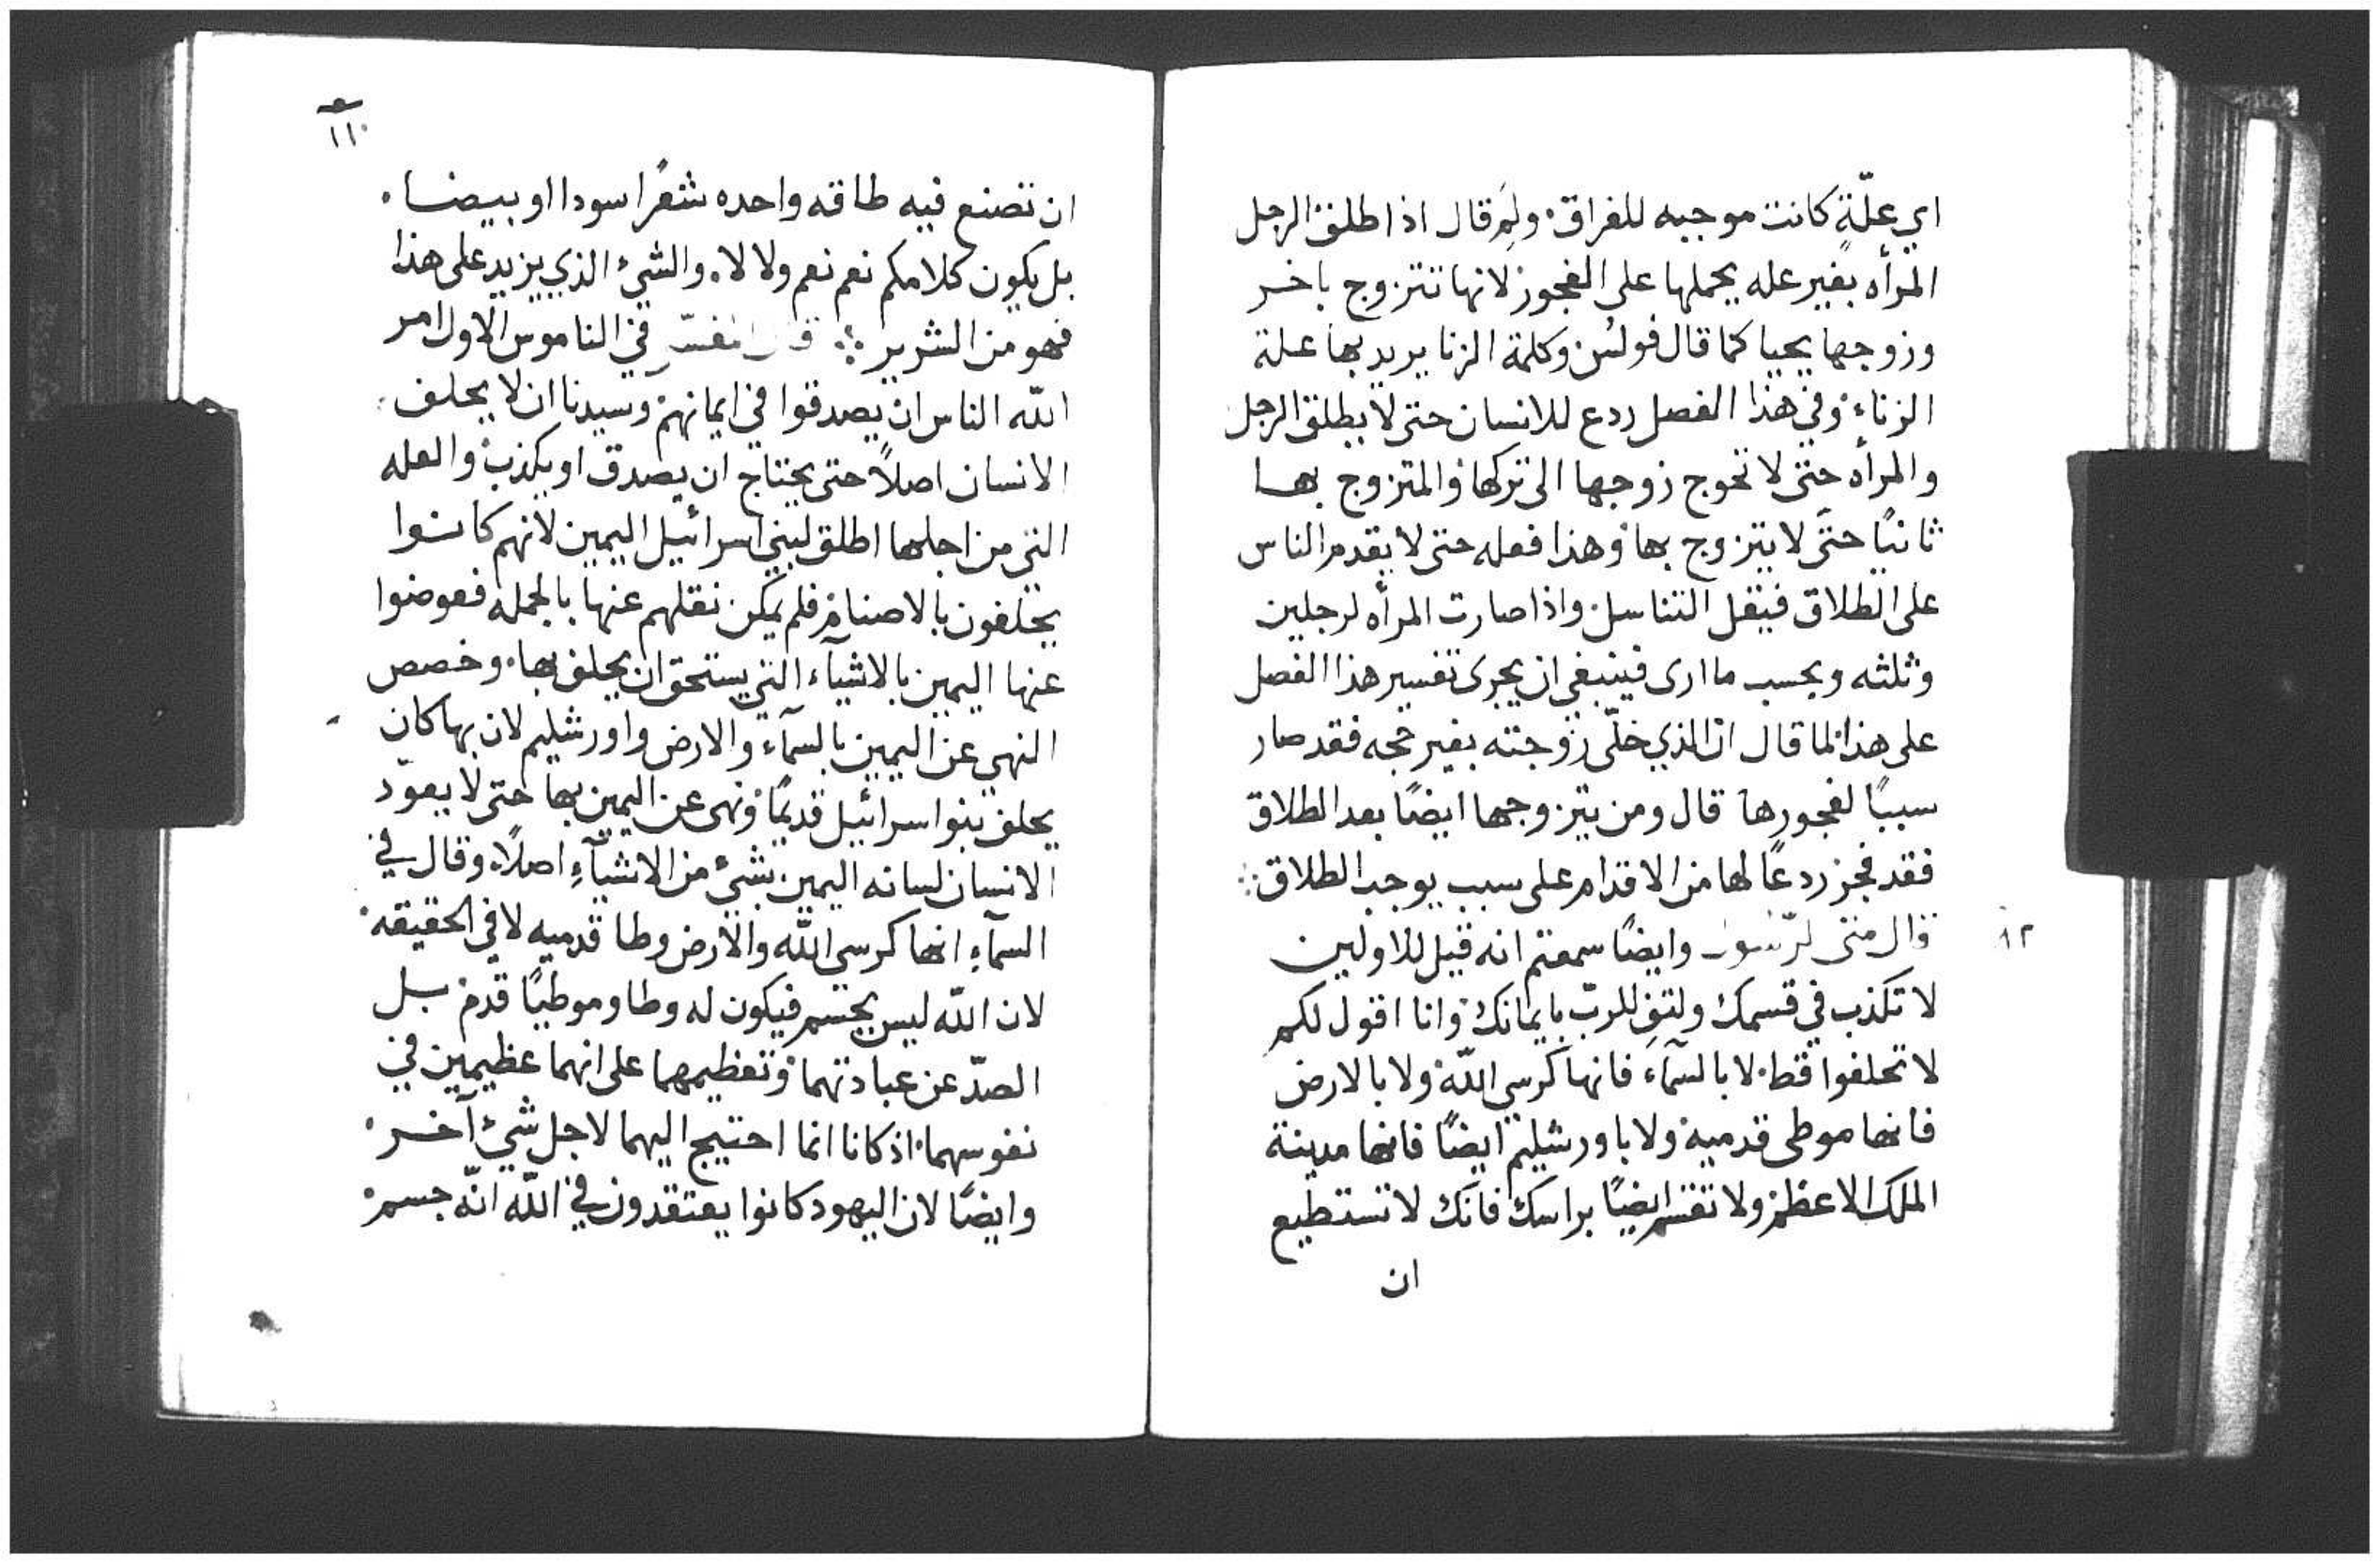 اي علّةٍ كانت موجبه للفراق ولِمَ قال اذا طلق الرجل
المرأه بغير عله يحملها على الفجور لانها تتزوج باخر
وزوجها يحيا كما قال فولس وكلمة الزنا يريد بها علة
الزناء وفي هذا الفصل ردع للانسان حتى لا يطلق الرجل
والمرأه حتى لا تحوج زوجها الى تركها والمتزوج بها
ثانيًا حتى لا يتزوج بها وهذا فعله حتى لا يقدم الناس
على الطلاق فيقل التناسل واذا صارت المرأه لرجلين
وثلثه وبحسب ما ارى فينبغي ان يجرى تفسير هذا الفصل
على هذا لما قال ان الذي خلّى زوجته بغير حجه فقد صار
سببًا لفجورها قال ومن يتزوجها ايضًا بعد الطلاق
فقد فجر ردعًا لها من الاقدام على سبب يوجب الطلاق
١٢
قال متى الرسول وايضًا سمعتم انه قيل للاولين
لا تكذب في قسمك ولتفِ للربّ بايمانك وانا اقول لكم
لا تحلفوا قط لا بالسمآء فانها كرسي اللّه ولا بالارض
فانها موطى قدميه ولا باورشليم ايضًا فانها مدينة
الملك الاعظم ولا تقسم ايضًا براسك فانك لا تستطيع
ان
١١٠
ان تصنع فيه طاقه واحده شعرًا سودا او بيضاء
بل يكون كلامكم نعم نعم ولا لا والشيء الذي يزيد على هذا
فهو من الشرير قال المفسّر في الناموس الاول امر
اللّه الناس ان يصدقوا في ايمانهم وسيدنا ان لا يحلف
الانسان اصلاً حتى يحتاج ان يصدق او يكذب والعله
التي من اجلها اطلق لبني اسرائيل اليمين لانهم كانوا
يحلفون بالاصنام فلم يمكن نقلهم عنها بالجمله فعوضوا
عنها اليمين بالاشيآء التي يستحق ان يحلف بها وخصص
النهي عن اليمين بالسمآء والارض واورشليم لان بها كان
يحلف بنو اسرائيل قديمًا ونهى عن اليمين بها حتى لا يعوّد
الانسان لسانه اليمين بشيء من الاشيآءِ اصلاً وقال في
السمآءِ انها كرسي اللّه والارض وطا قدميه لا في الحقيقه
لان اللّه ليس بجسم فيكون له وطا وموطيًا قدم بل
الصدّ عن عبادتهما وتعظيمهما على انهما عظيمين في
نفوسهما اذ كانا انما احتيج اليهما لاجل شيء آخر
وايضًا لان اليهود كانوا يعتقدون في اللّه انّه جسم